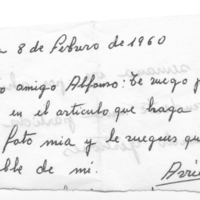 a 8 de Febrero de 1960
o amigo Alfonso: Te ruego p
en el articulo que haga
foto mia y le ruegues qu
ble de mi.
Arri